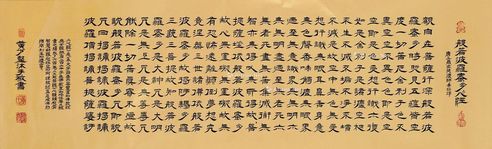 般若波羅蜜多心經
唐三藏法師玄奘譯
觀自在菩薩行深般若波
羅蜜多時照見五蘊皆空
度一切苦厄舍利子色不
異空空不異色色即是空
空即是色受想行識亦復
如是舍利子是諸法空相
不生不滅不垢不淨不增
不減是故空中無色無受
想行識無眼耳鼻舌身意
無色聲香味觸法無眼界
乃至無意識界無無明亦
無無明盡乃至無老死亦
無老死盡無苦集滅道無
智亦無得以無所得故菩
提薩埵依般若波羅蜜多
故心無罣礙無罣礙故無
有恐怖遠離顛倒夢想究
竟涅槃三世諸佛依般若
波羅蜜多故得阿耨多羅
三藐三菩提故知般若波
羅蜜多是大神咒是大明
咒是無上咒是無等等咒
能除一切苦真實不虛故
說般若波羅蜜多咒即說
咒曰揭諦揭諦波羅揭諦
波羅僧揭諦菩提薩婆訶
沐手敬書